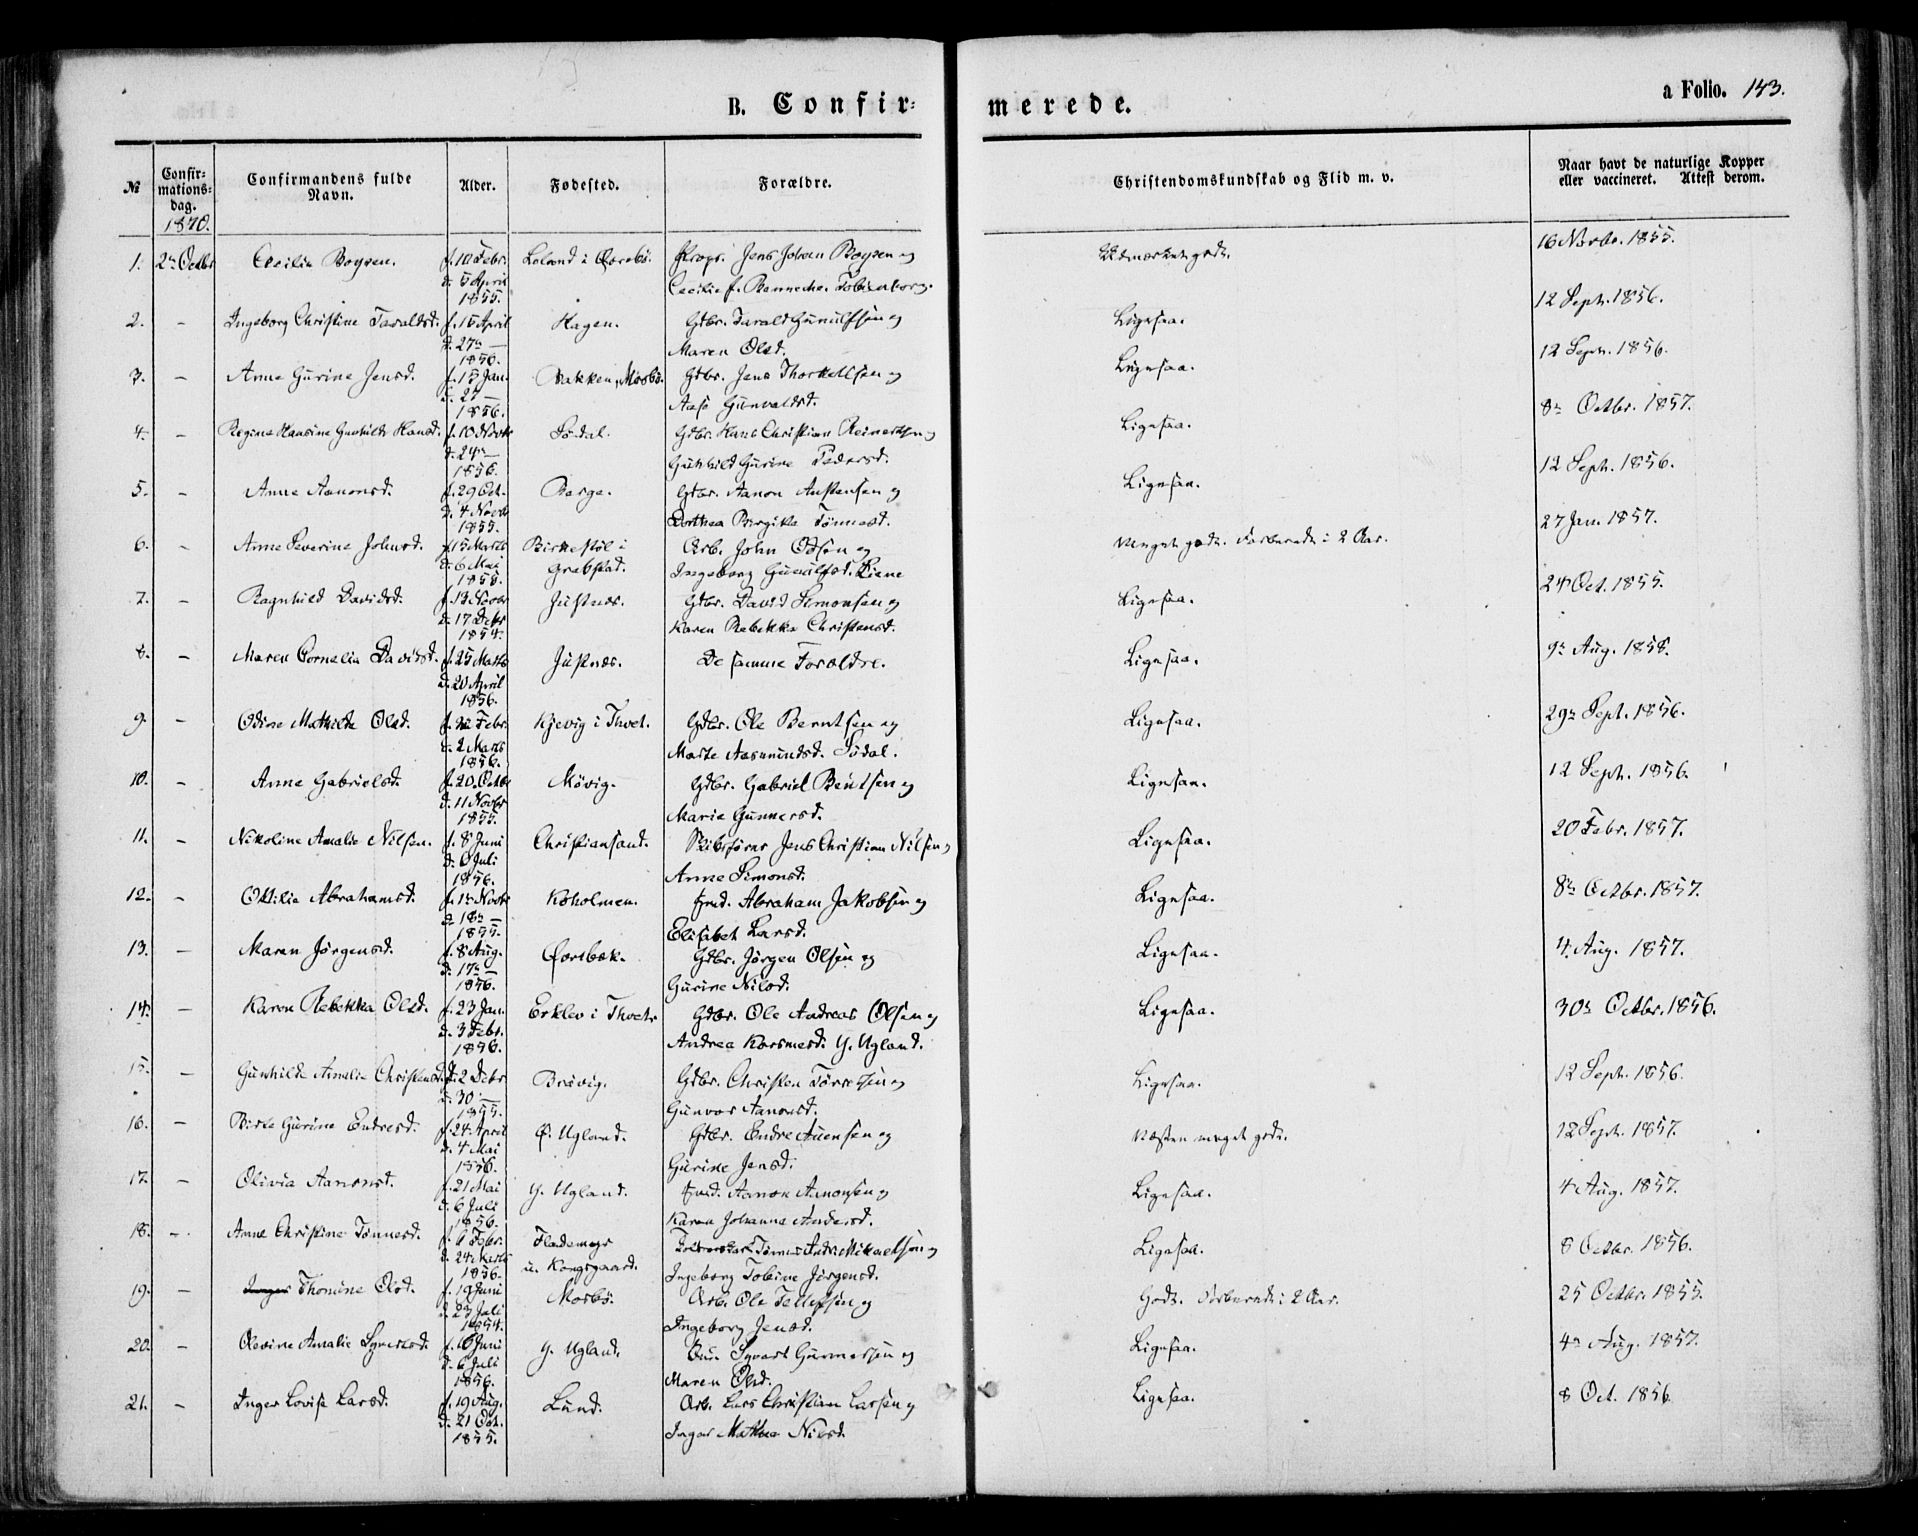 B. Confir=
merede.
a Folio. 143.
№
Confir=
mations=
dag.
1870.
Confirmandens fulde
Navn.
Alder.
Fødested.
Forældre.
Christendomskundskab og Flid m. v.
Naar havt de naturlige Kopper
eller vaccineret. Attest derom.
1. 2n Octbr Cecilia Boysen. f. 10 Febr. Loland i Øvrebö. Jens Johan Boysen og 16 Novbr. 1855.
d. 5 April Cecilie f.
1855.
2. - Ingeborg Christine Taraldsd. f. 15 April Hagen. Gdbr. Tarald Gunulfsen og Ligesaa. 12 Sept. 1856.
d. 27n — Maren Olsd.
1856.
3. - Anne Gurine Jensd. f. 15 Jan. Bakken, Mosbö. Gdbr. Jens Thorkelsen og Ligesaa. 12 Sept. 1856.
d. 27 — Aase Gunvaldsd.
1856.
4. - Regine Hansine Gunhilde Hansd. f. 10 Novbr Södal. Gdbr. Hans Christian Reinertsen og Ligesaa. 8n Octbr. 1857.
d. 24n — Gunhild Gurine Pedersd.
1856.
5. - Anne Aanonsd. f. 29 Oct. Berge. Gdbr. Aanon Austensen og Ligesaa. 12 Sept. 1856.
d. 4 Novbr Dorthea Birgithe Tönnesd.
1855.
6. - Anne Severine Johnsd. f. 15 Marts Birkestöl i Arb. John Odsen og Meget godt. Forberedt i 2 Aar. 27 Jan. 1857.
d. 6 Mai Grebstad. Ingeborg Gunulfsd. Liene
1855.
7. - Ragnhild Davidsd. f. 13 Novbr Justnæs. Gdbr. David Simonsen og Ligesaa. 24 Oct. 1855.
d. 17 Debr Karen Rebekka Christensd.
1854.
8. - Maren Cornelia Davidsd. f. 25 Marts Justnæs. De samme Forældre. Ligesaa. 9n Aug. 1858.
d. 20 April
1856.
9. - Odine Mathilde Olsd. f. 22 Febr. Kjevig i Thvet. Gdbr. Ole Berntsen og Ligesaa. 29n Sept. 1856.
d. 2 Marts Marte Aasmundsd. Södal.
1856.
10. - Anne Gabrielsd. f. 20 Octbr Mövig. Gdbr. Gabriel Bentsen og Ligesaa. 12 Sept. 1856.
d. 11 Novbr Marie Gunnersd.
1855.
11. - Nikoline Amalie Nilsen. f. 8 Juni Christiansand. Skibsförer Jens Christian Nilsen og Ligesaa. 20 Febr. 1857.
d. 6 Juli Anne Simonsd.
1856.
12. - Ottilie Abrahamsd. f. 1n Novbr Koholmen. Abraham Jakobsen og Ligesaa. 8n Octbr. 1857.
d. 18n — Elisabet Larsd.
1855.
13. - Maren Jörgensd. f. 8 Aug. Gdbr. Jörgen Olsen og Ligesaa. 4 Aug. 1857.
d. 17n — Gurine Nilsd.
1856.
14. - Karen Rebekka Olsd. f. 23 Jan. Erklev i Thvet. Gdbr. Ole Andreas Olsen og Ligesaa. 30n Octbr. 1856.
d. 3 Febr. Andrea Y. Ugland.
1856.
15. - Gunhilde Amalie Christensd. f. 2 Debr Brövig. Gdbr. Christen Törresen og Ligesaa. 12 Sept. 1856.
d. 30 — Gunvor Aanonsd.
1855.
16. - Birte Gurine Endresd. f. 24 April Ö. Ugland. Gdbr. Endre Auensen og Næsten meget godt. 12 Sept. 1857.
d. 4 Mai Gurine Jensd.
1856.
17. - Olivia Aanonsd. f. 21 Mai Y. Ugland. Aanon Aanonsen og Ligesaa. 4 Aug. 1857.
d. 6 Juli Karen Johanne Andersd.
1856.
18. - Anne Christine Tönnesd. f. 6 Febr. Flademoer Tönnes Andr. Mikaelsen og Ligesaa. 8 Octbr. 1856.
d. 24 Marts u. Kongsgaard. Ingeborg Tobine Jörgensd.
1856.
19. - Thomine Olsd. f. 19 Juni Mosbö. Arb. Ole Tellefsen og Godt. Forberedt i 2 Aar. 25 Octbr. 1855.
d. 27 Juli Ingeborg Jensd.
1854.
20. - Olevine Amalie Syvertsd. f. 16 Juni Y. Ugland. Syvert Gunnersen og Ligesaa. 4n Aug. 1857.
d. 6 Juli Maren Olsd.
1856.
21. - Inger Lovise Larsd. f. 19 Aug. Lund. Arb. Lars Christian Larsen og Ligesaa. 8 Oct. 1856
d. 21 Oct. Inger Mathea Nilsd.
1855.